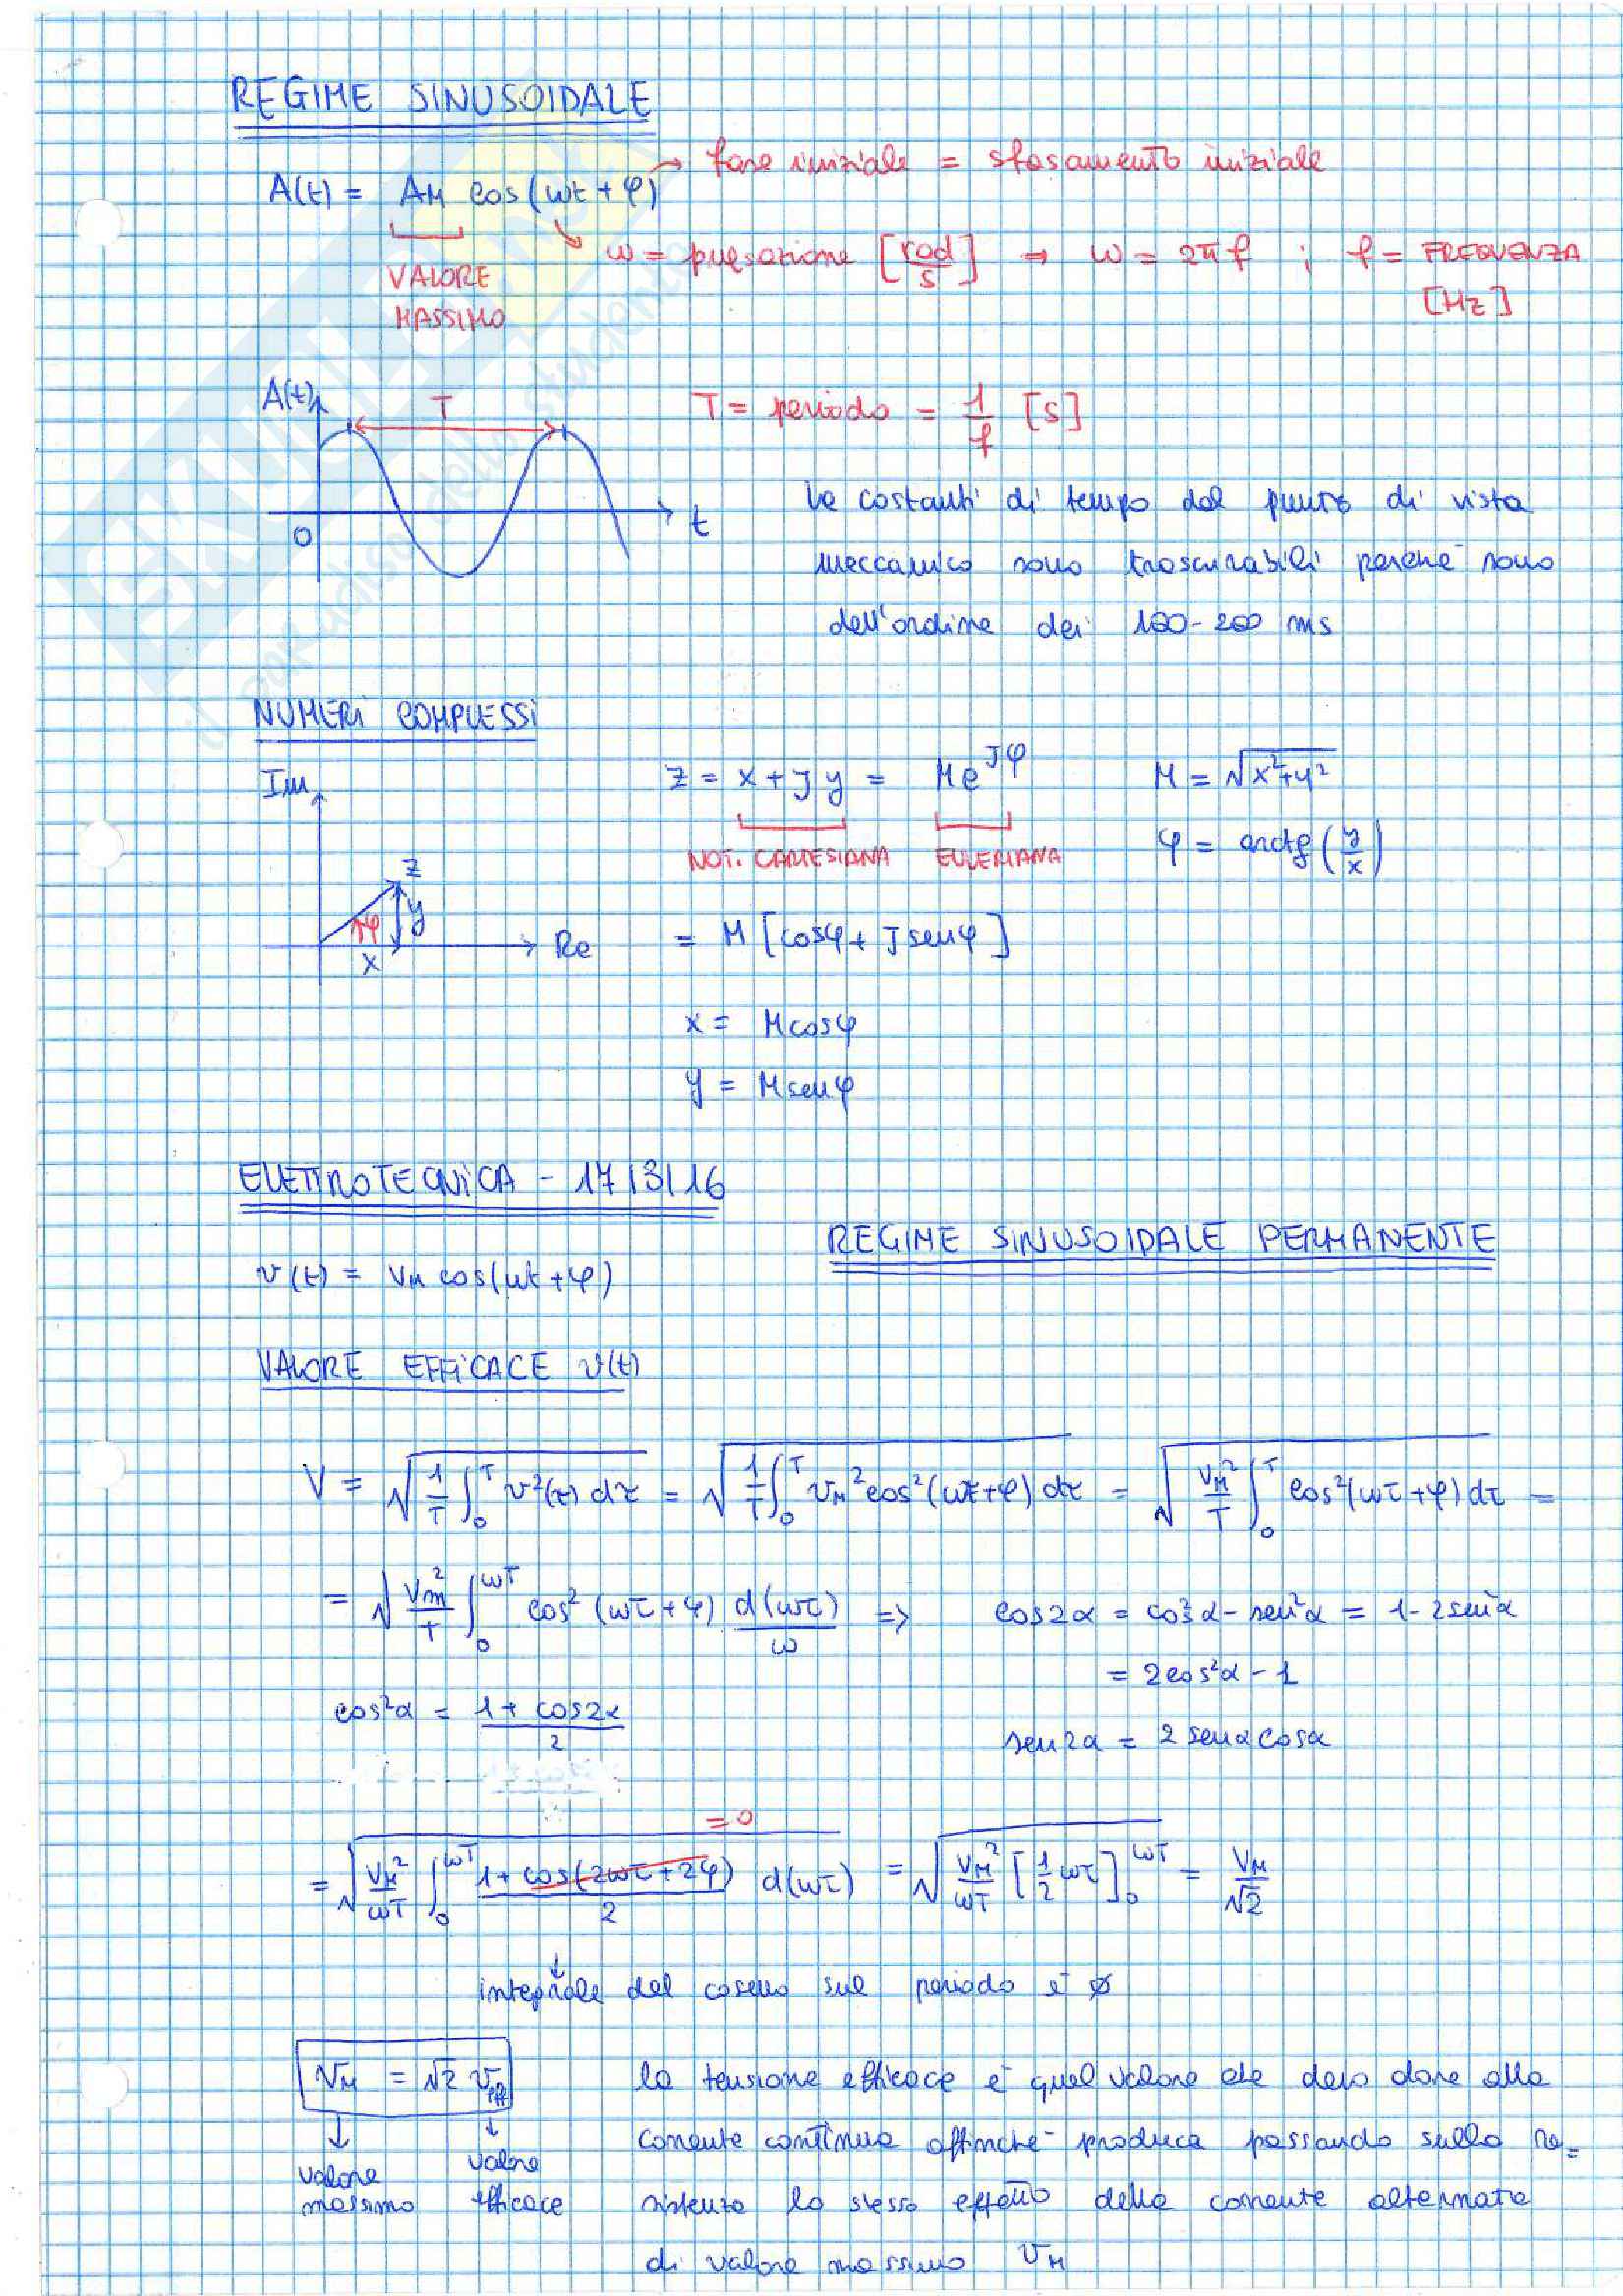 REGIME SINUSOIDALE
A(t) = AM cos(ωt + φ) → fase iniziale = sfasamento iniziale
VALORE MASSIMO
ω = pulsazione [rad/s] → ω = 2πf ; f = FREQUENZA
[Hz]
A(t)
T
T = periodo = 1/f [s]
0
t
le costanti di tempo dal punto di vista
meccanico sono trascurabili perché sono
dell'ordine dei 100-200 ms
NUMERI COMPLESSI
Im
z = x + Jy = Me^Jφ
M = √x²+y²
NOT. CARTESIANA EULERIANA
φ = arctg (y/x)
z
φ
y
x
Re
= M [cosφ + J senφ]
x = Mcosφ
y = Msenφ
ELETTROTECNICA - 17/3/16
REGIME SINUSOIDALE PERMANENTE
v(t) = VM cos(ωt + φ)
VALORE EFFICACE v(t)
V = √(1/T ∫₀^T v²(τ) dτ) = √(1/T ∫₀^T VM² cos²(ωτ+φ) dτ) = √(VM²/T ∫₀^T cos²(ωτ+φ) dτ) =
= √(Vm²/T ∫₀^ωT cos² (ωτ+φ) d(ωτ)/ω) ⇒ cos2α = cos²α - sen²α = 1 - 2sen²α
= 2cos²α - 1
cos²α = (1 + cos2α)/2
sen2α = 2 senα cosα
= 0
= √(VM²/ωT ∫₀^ωT (1 + cos(2ωτ+2φ))/2 d(ωτ)) = √(VM²/ωT [1/2 ωτ]₀^ωT) = VM/√2
↓
integrale del coseno sul periodo è ∅
VM = √2 Veff
↓ ↓
valore massimo
valore efficace
la tensione efficace è quel valore che devo dare alla
corrente continua affinché produca passando sulla re=
sistenza lo stesso effetto della corrente alternata
di valore massimo VM
SKUOLA.net
il paradiso dello studente